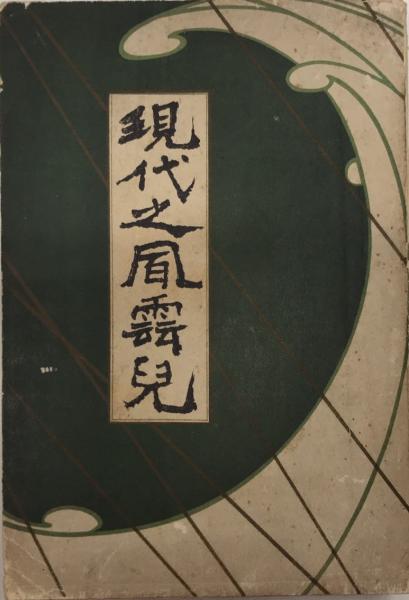 現代之風雲兒